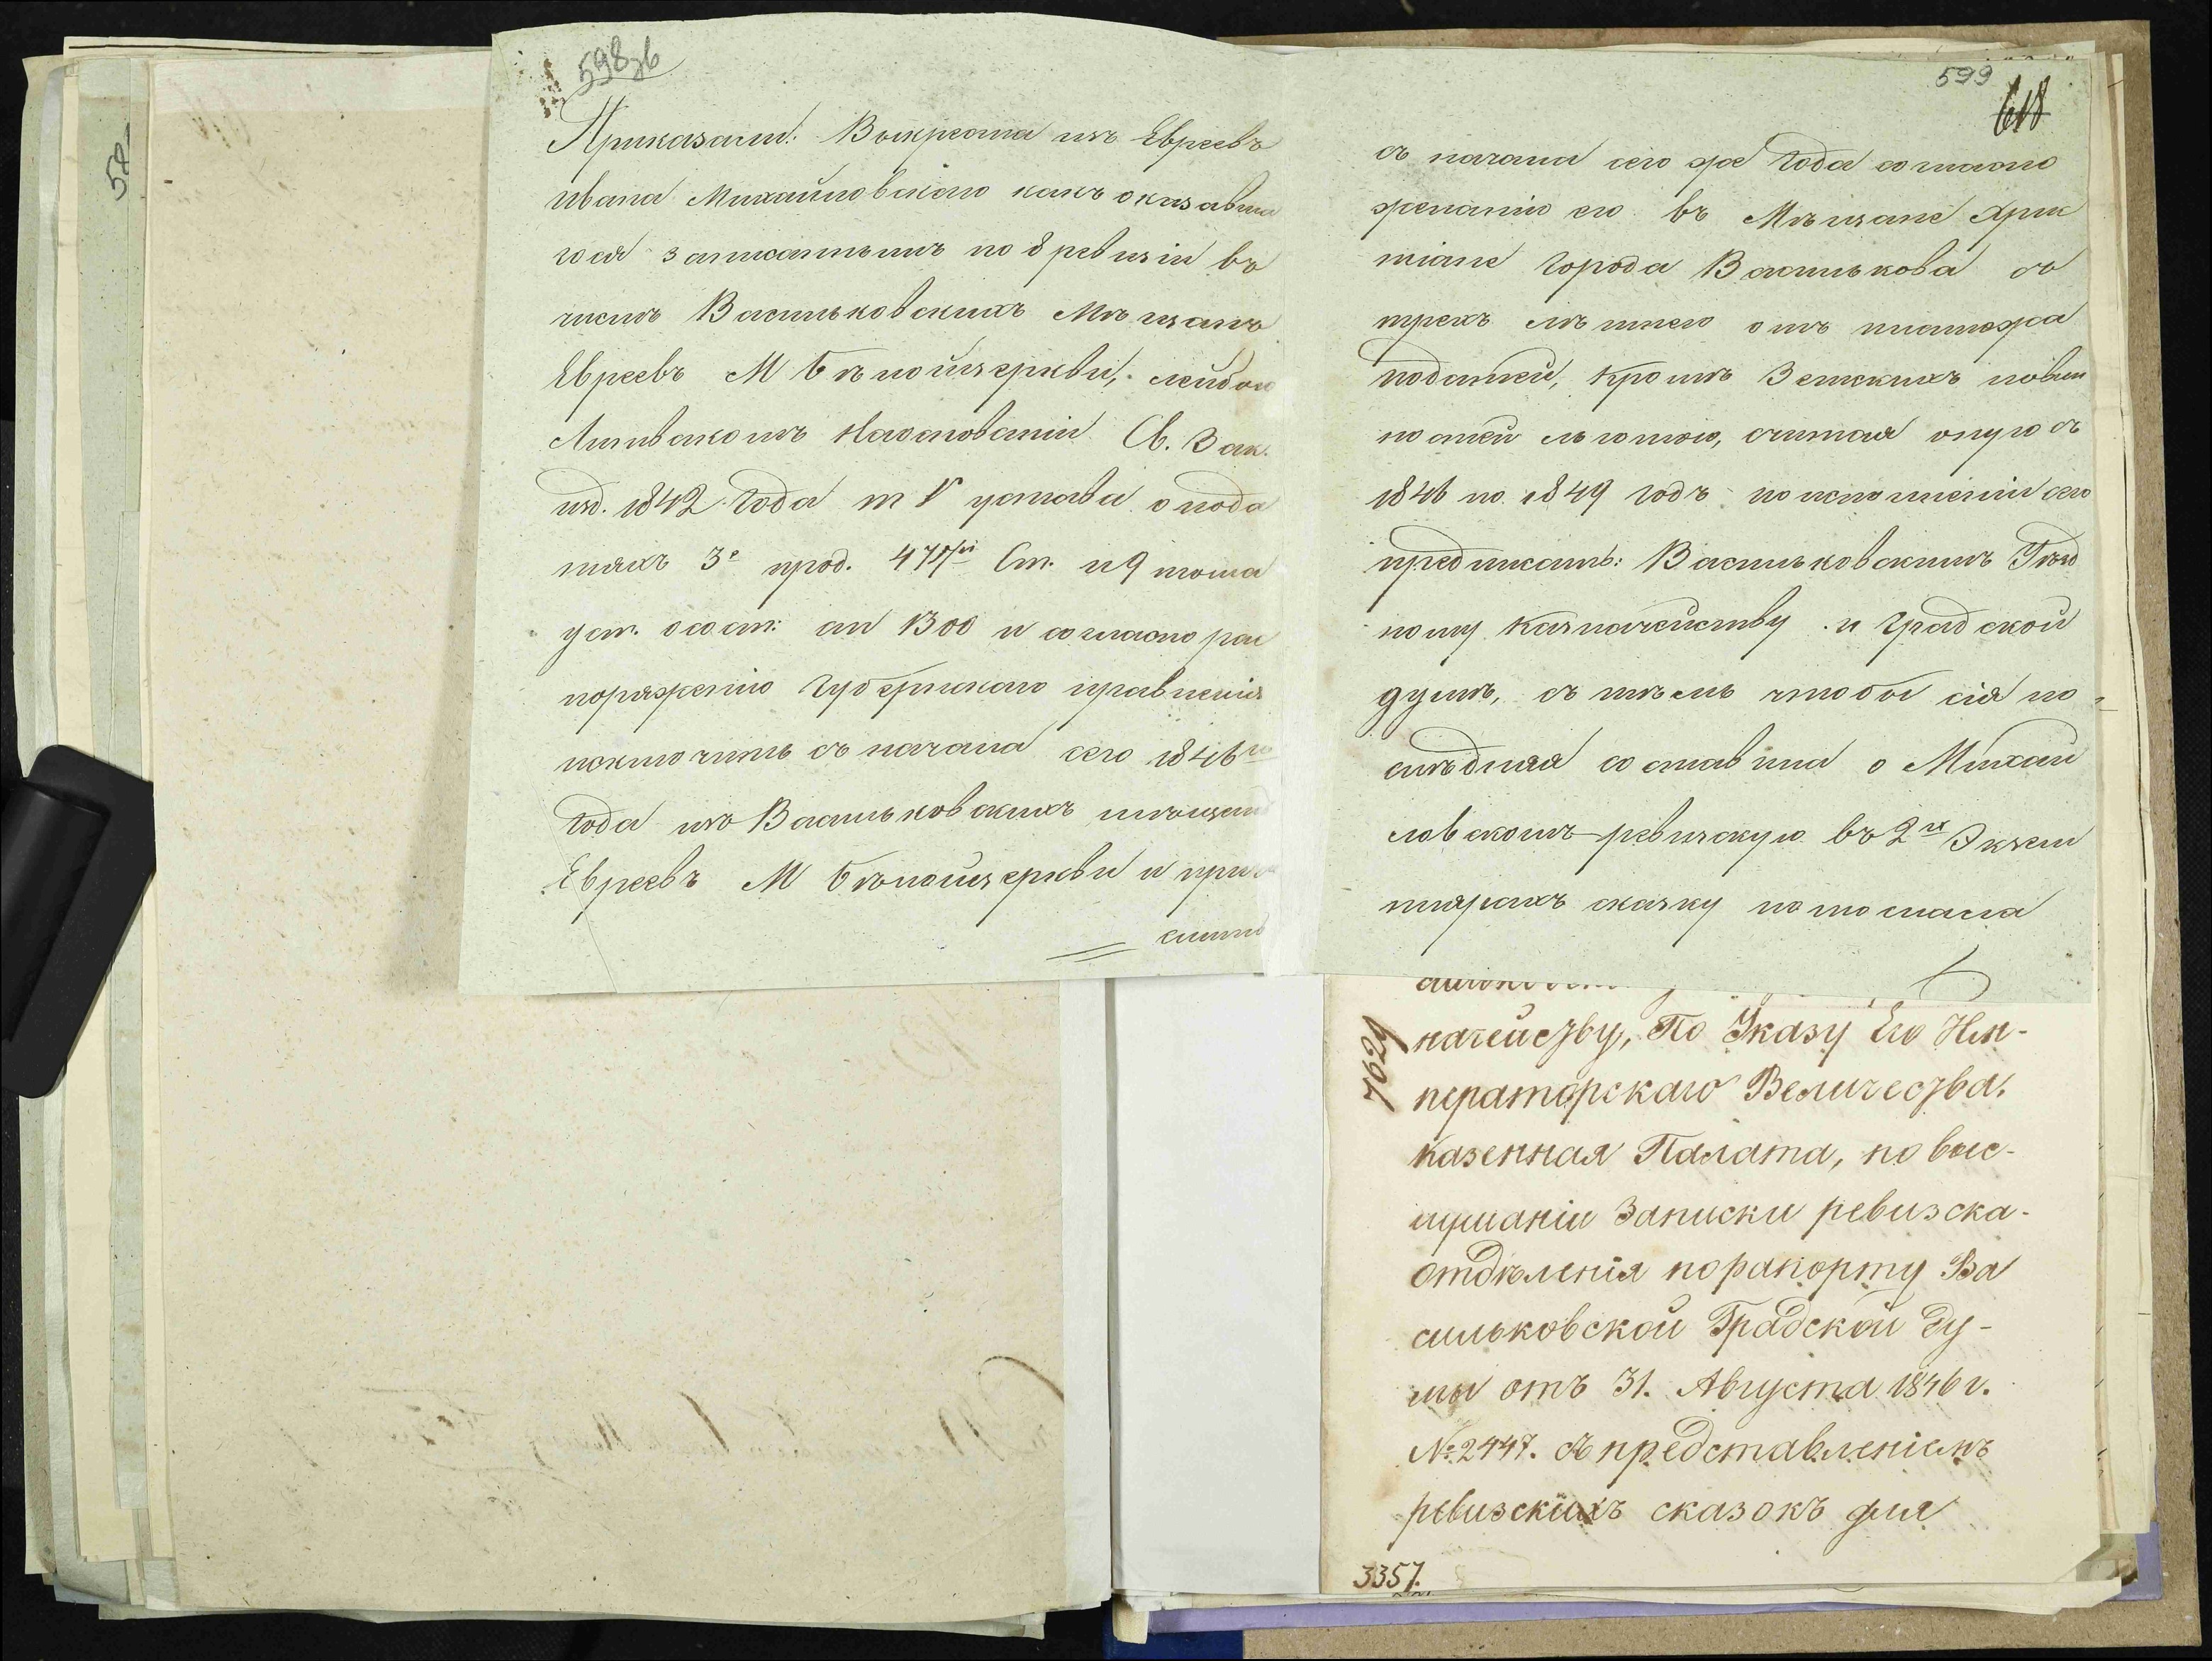 598об
Приказали: Выкреста изъ Евреевъ
Ивана Михайловскаго какъ оказавша
гося записаннымъ по 8 ревизіи въ
числѣ Васильковскихъ Мѣщанъ
Евреевъ М Бѣлойцеркви, Лейбою
Литвакомъ на основаніи Св. Зак.
изд. 1842 Года т V устава о пода
тяхъ 3е прод. Ст. и 9 тома
уст. о сост: ст 1300 и согласно рас
поряженію Губернскаго правленія
исключить съ начала сего 1846го
Года изъ Васильковскихъ мѣщанъ
Евреевъ М Бѣлойцеркви и причи
слить
599
618
съ начала сего же Года согласно
желанію его въ Мѣщане Хрис
тіане Города Василькова съ
трехъ лѣтнею отъ платежа
податей, Кромѣ Земскихъ повин
ностей льготою, считая оную съ
1846 по 1849 годъ по исполненіи сего
предписать: Васильковскимъ Уѣзд
ному Казначейству и Градской
думѣ, съ тѣмъ чтобы сія по=
слѣдняя составила о Михай
ловскомъ ревизскую въ 2хъ Экзем
плярахъ сказку по
7629
начейству, По Указу Его Им-
ператорскаго Величества.
Казенная Палата, по выс-
лушаніи Записки ревизска-
отдѣленія по рапорту Ва
сильковской Градской Ду-
мы отъ 31. Августа 1846 г.
№ 2447. съ представленіемъ
ревизскихъ сказокъ для
3357.